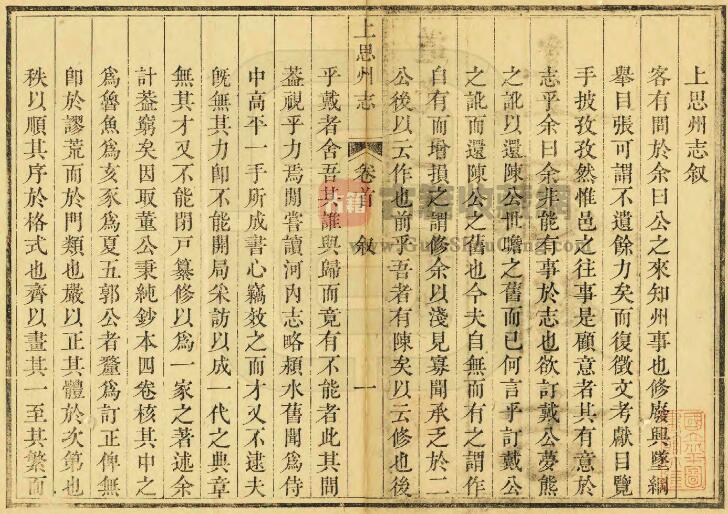 上思州志叙
客有問於余曰公之來知州事也修廢興墜綱
舉目張可謂不遺餘力矣而復徵文考獻日覽
手披孜孜然惟邑之往事是顧意者其有意於
志乎余曰余非能有事於志也欲訂戴公夢熊
之訛以還陳公世瞻之舊而已何言乎訂戴公
之訛而還陳公之舊也今夫自無而有之謂作
自有而增損之謂修余以淺見寡聞承乏於二
公後以云作也前乎吾者有陳矣以云修也後
上思州志 卷首 叙 一
乎戴者舍吾其誰與歸而竟有不能者此其間
葢視乎力焉閒嘗讀河內志略潁水舊聞為侍
中高平一手所成書心竊效之而才又不逮夫
旣無其力卽不能開局采訪以成一代之典章
無其才又不能閉戶纂修以為一家之著述余
計葢窮矣因取董公秉純鈔本四卷核其中之
為魯魚為亥豕為夏五郭公者釐為訂正俾無
卽於謬荒而於門類也嚴以正其體於次第也
秩以順其序於格式也齊以畫其一至其繁而
古籍
www.GuJiShuCang.com